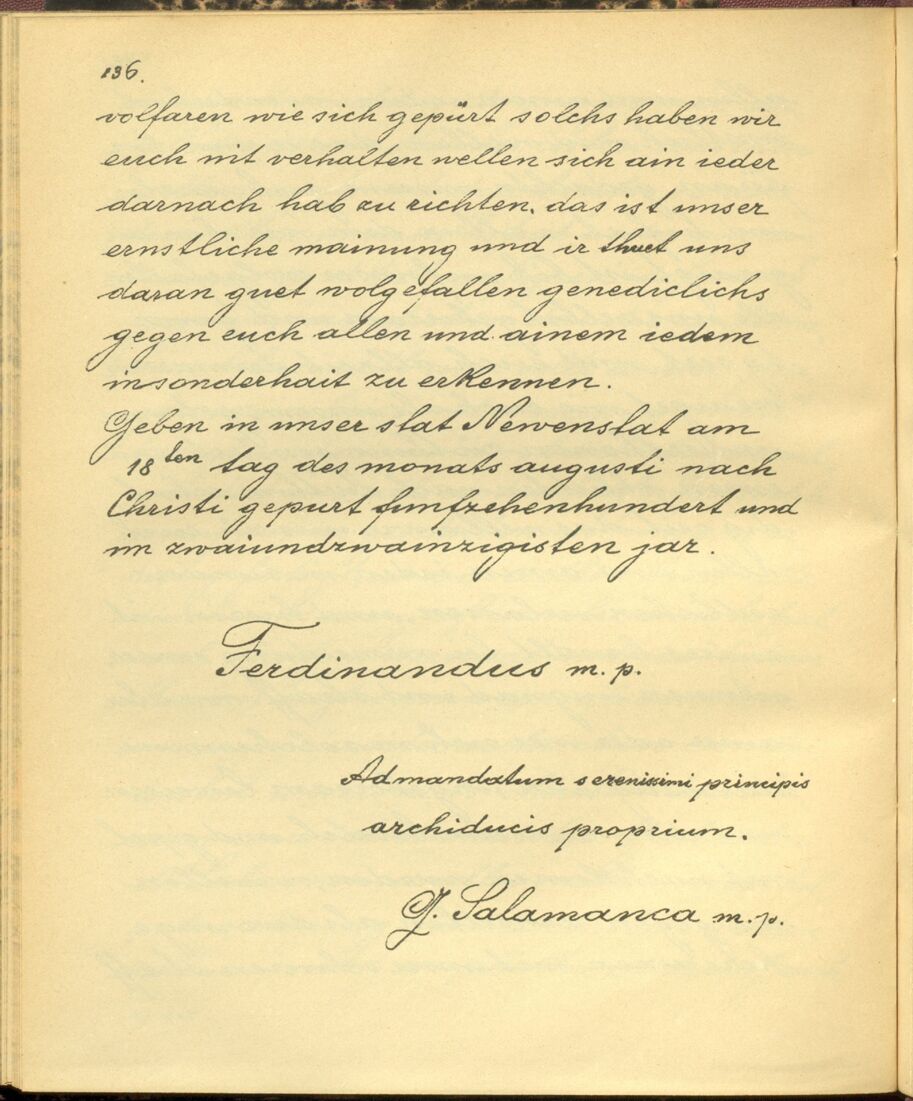 136.
volfaren wie sich gepürt solchs haben wir
euch nit verhalten wellen sich ain ieder
darnach hab zu richten. das ist unser
ernstliche mainung und ir thuet uns
daran guet wolgefallen genediclichs
gegen euch allen und ainem iedem
insonderhait zu erkennen.
Geben in unser stat Newenstat am
18ten tag des monats augusti nach
Christi gepurt funfzehenhundert und
im zwaiundzwainzigisten jar.
Ferdinandus m. p.
Ad mandatum serenissimi principis
archiducis proprium.
G. Salamanca m. p.